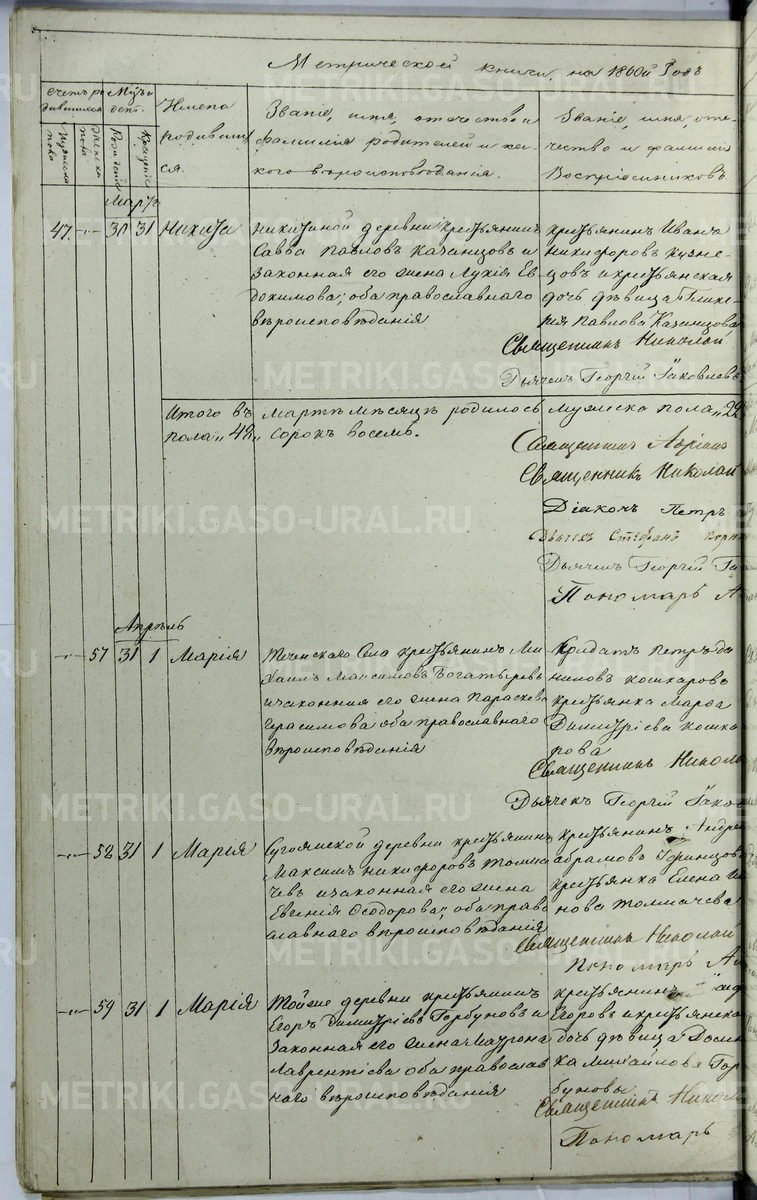 Метрической книги на 1860й Годъ
Счетъ ро
дившихся
Мужеска
пола
Женска
пола
Мѣс. и
день.
Рожденіе
Крещеніе
Имена
родивших
ся.
Званіе, имя, отчество и
фамилія родителей и ка-
кого вѣроисповѣданія.
Званіе, имя, оте-
чество и фамилія
Воспріемниковъ
Мартъ
47. -"- 30 31 Никита
Никитиной деревни крестьянинъ
Савва Павловъ Казанцовъ и
законная его жена Лукія Ев-
докимова; оба православнаго
вѣроисповѣданія
крестьянинъ Иванъ
Никифоровъ Кузне-
цовъ и крестьянская
дочь дѣвица Глике-
рія Павлова Казанцова
Священникъ Николай
Дьячекъ Георгій Іаковлевъ
Итого въ Мартѣ мѣсяцѣ родилось Мужеска пола "
пола "48" сорокъ восемь.
Священникъ Адріанъ
Священникъ Николай
Діаконъ Петръ
Дьячекъ Стефанъ
Дьячекъ Георгій
Пономарь А
Апрѣль
-"- 57 31 1 Марія
Теченскаго Села крестьянинъ Ми-
хаилъ Максимовъ Богатыревъ
и законная его жена Параскева
Герасимова оба православнаго
вѣроисповѣданія
Солдатъ Петръ Да
ниловъ Кошкаровъ
крестьянка Марѳа
Димитріева Кошка
рова
Священникъ Никола
Дьячекъ Георгій Іаков
-"- 58 31 1 Марія
Сугоякской деревни крестьянинъ
Максимъ Никифоровъ Толма
чевъ и законная его жена
Евгенія Ѳеодорова, оба право
славнаго вѣроисповѣданія
крестьянинъ Андрей
Абрамовъ
крестьянка Елена
нова Толмачева
Священникъ Николай
Пономарь А
-"- 59 31 1 Марія
Тойже деревни крестьянинъ
Егоръ Димитріевъ Горбуновъ и
законная его жена Матрона
Лаврентіева оба православ
наго вѣроисповѣданія
крестьянинъ
Егоровъ и крестьянска
дочь дѣвица Домни
ка Михайлова Гор
буновы
Священникъ Никола
Пономарь
METRIKI.GASO-URAL.RU
METRIKI.GASO-URAL.RU
METRIKI.GASO-URAL.RU
METRIKI.GASO-URAL.RU
METRIKI.GASO-URAL.RU
METRIKI.GASO-URAL.RU
METRIKI.GASO-URAL.RU